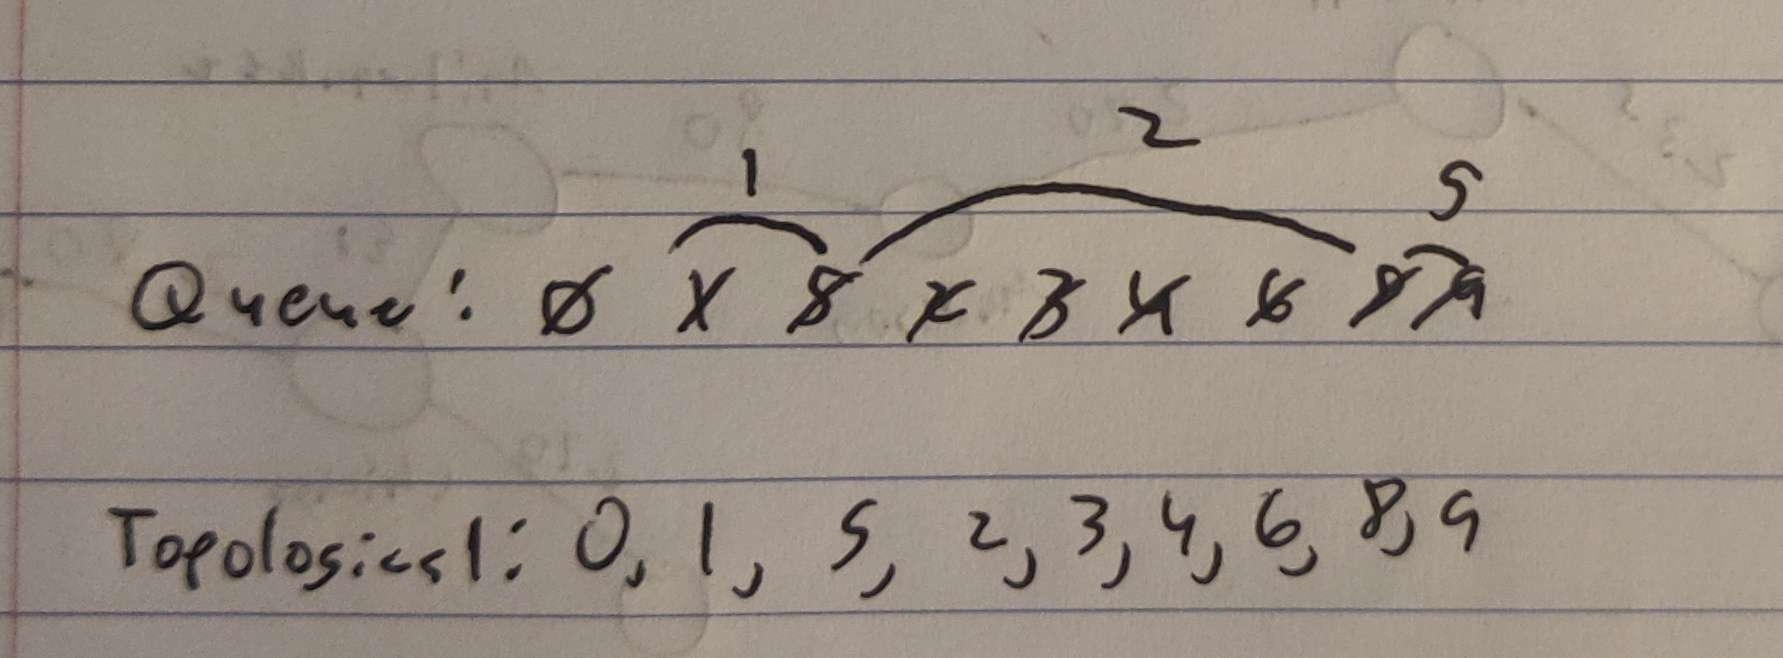 1 2 5
Queue: 0 1 5 2 3 4 6 8 9
Topological: 0, 1, 5, 2, 3, 4, 6, 8, 9